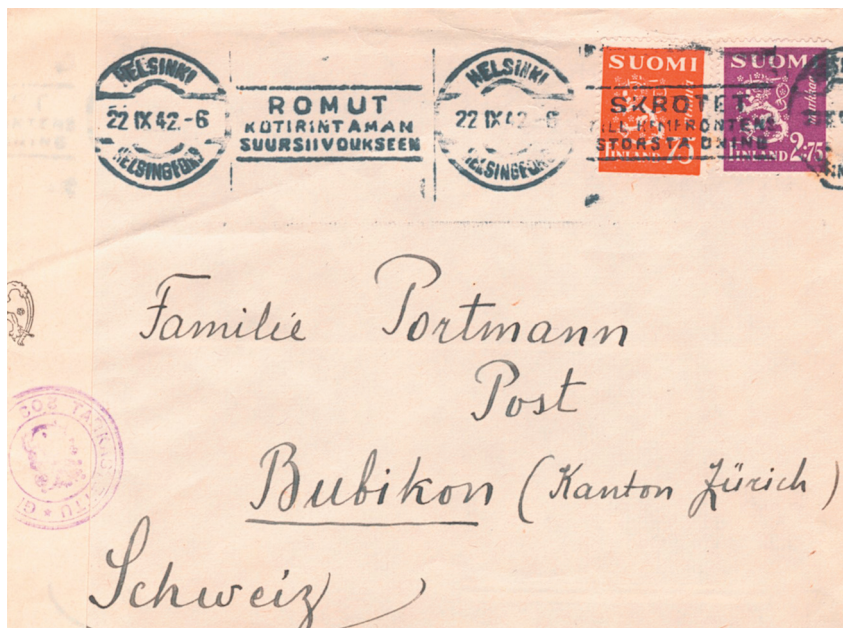 HELSINKI
22 IX 42.-6
HELSINGFORS
ROMUT
KOTIRINTAMAN
SUURSIIVOUKSEEN
HELSINKI
22 IX 42.-6
HELSINGFORS
SKROTET
TILL HEMFRONTENS
STORSTÄDNING
SUOMI
FINLAND 75
SUOMI
FINLAND 2.75
Familie Portmann
Post
Bubikon (Kanton Zürich)
Schweiz